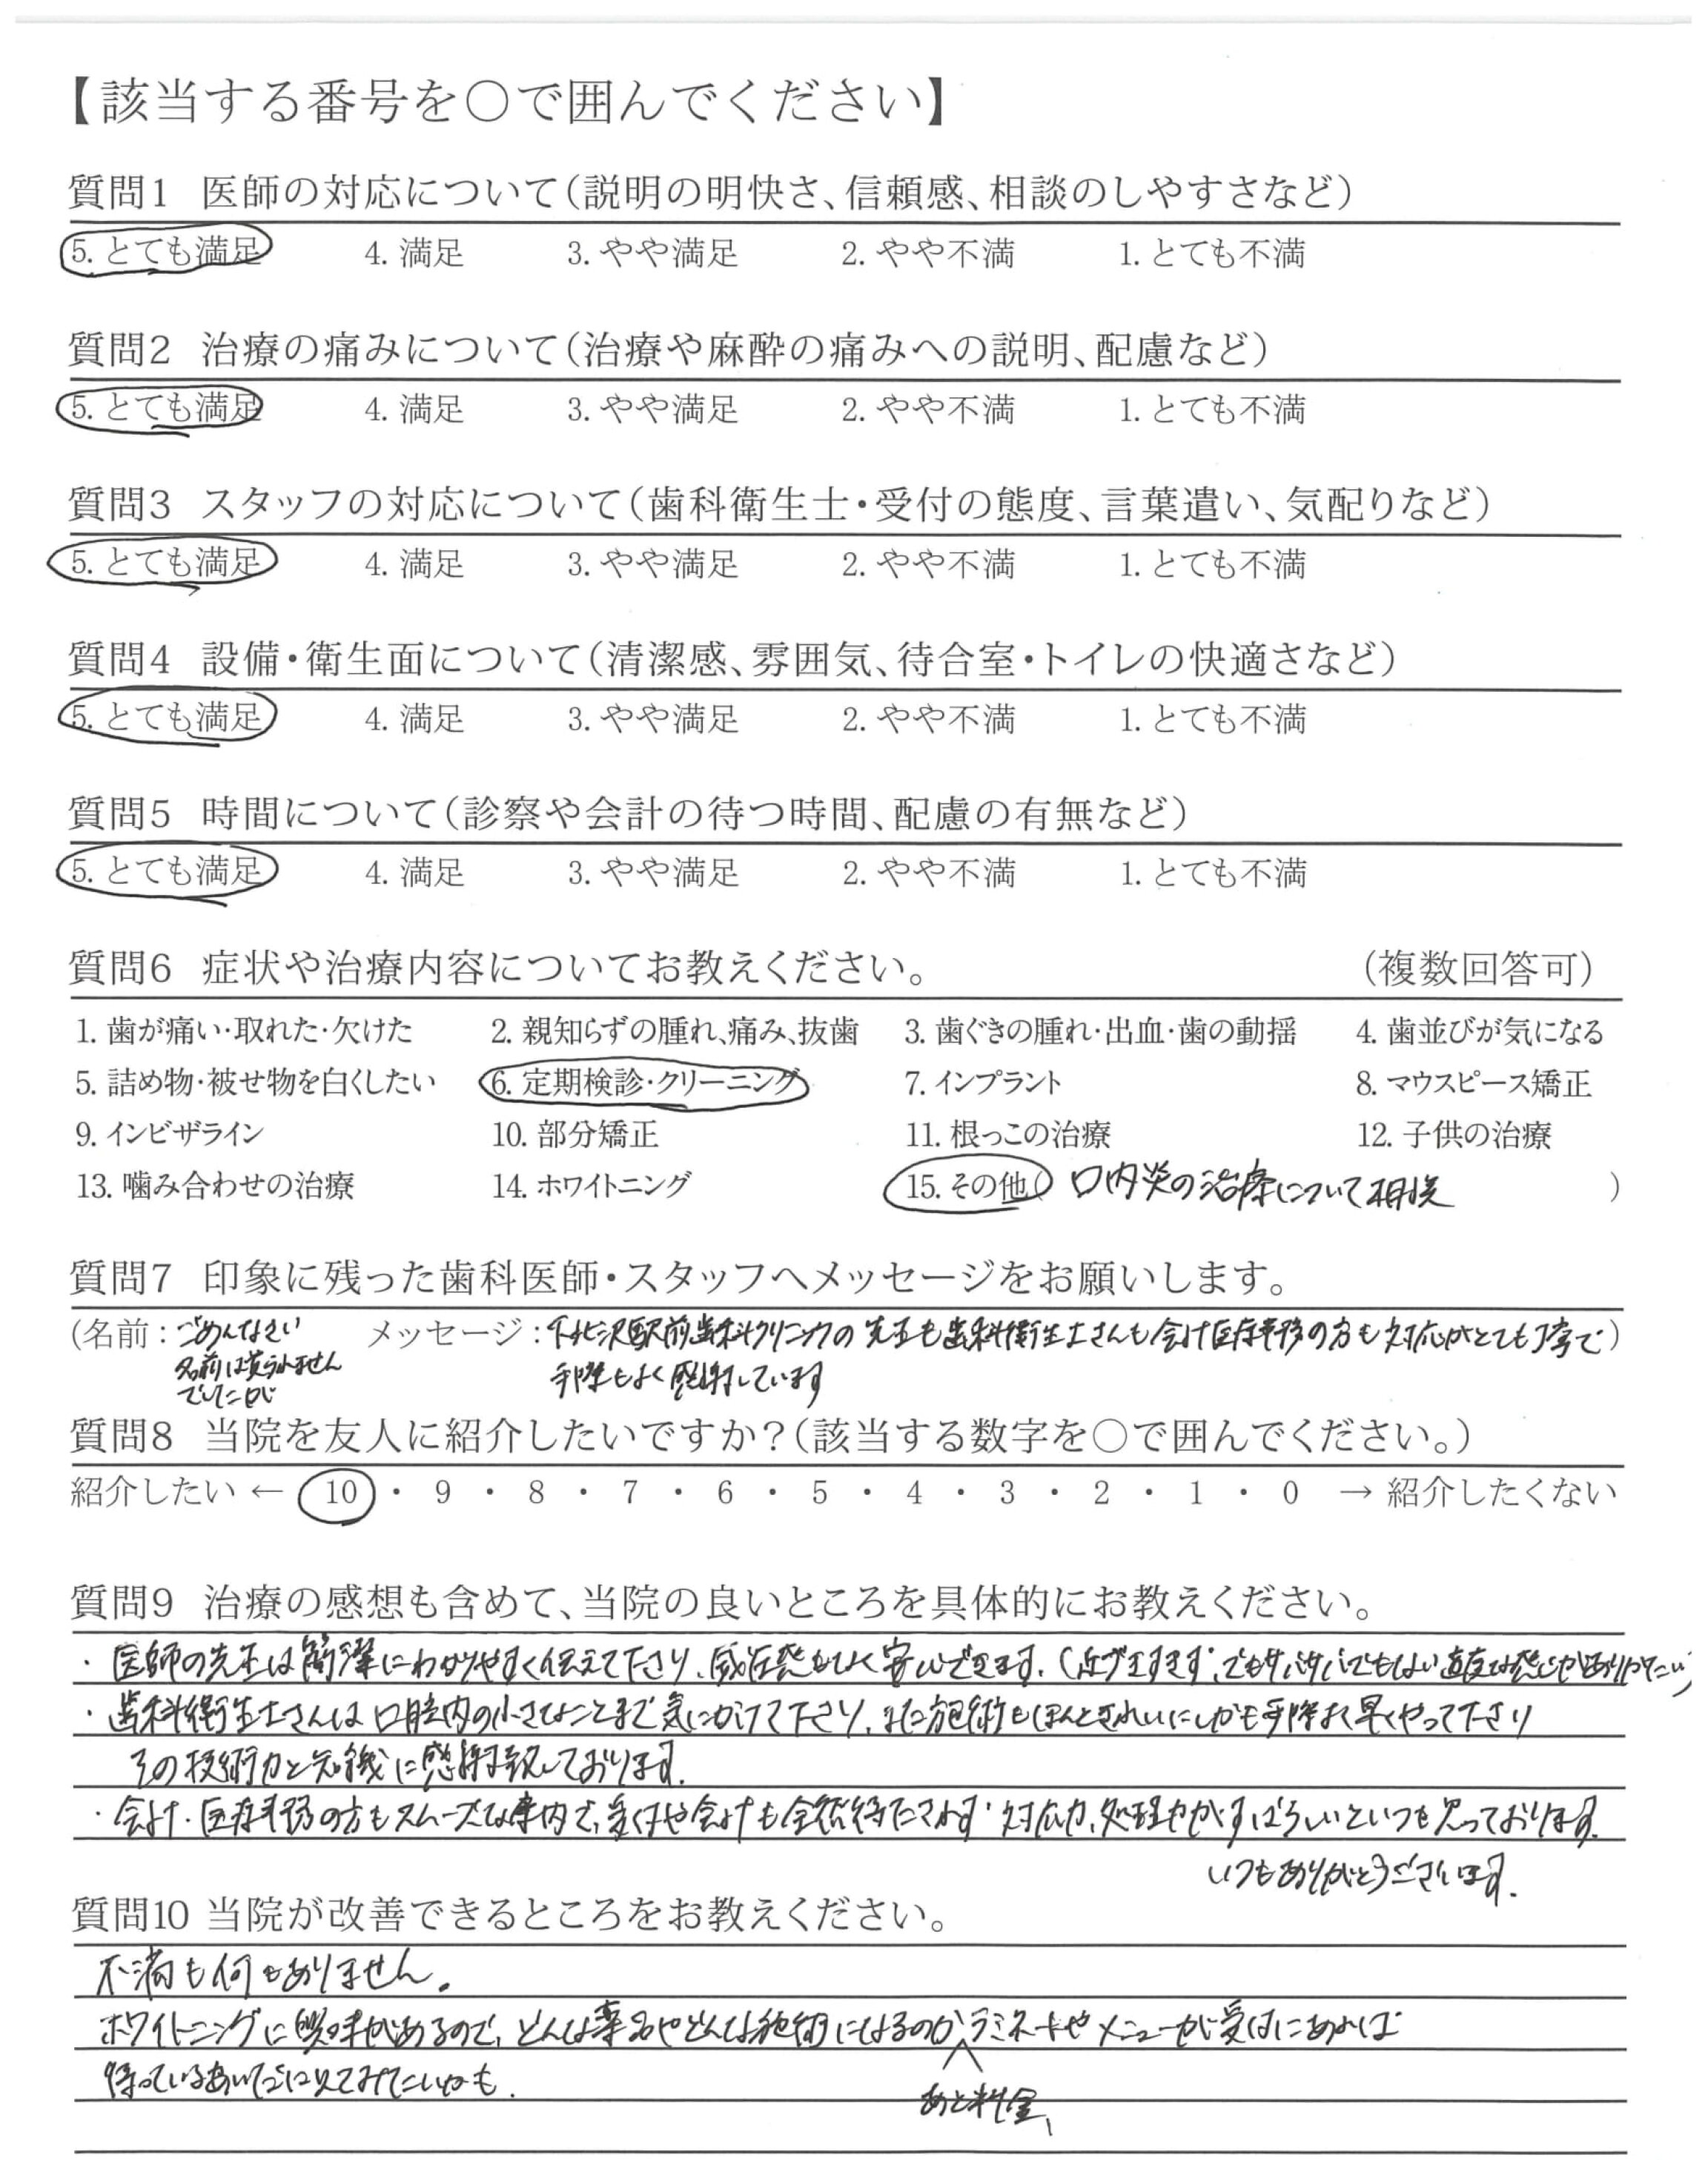 【該当する番号を○で囲んでください】
質問1 医師の対応について(説明の明快さ、信頼感、相談のしやすさなど)
5. とても満足 4. 満足 3. やや満足 2. やや不満 1. とても不満
質問2 治療の痛みについて(治療や麻酔の痛みへの説明、配慮など)
5. とても満足 4. 満足 3. やや満足 2. やや不満 1. とても不満
質問3 スタッフの対応について(歯科衛生士・受付の態度、言葉遣い、気配りなど)
5. とても満足 4. 満足 3. やや満足 2. やや不満 1. とても不満
質問4 設備・衛生面について(清潔感、雰囲気、待合室・トイレの快適さなど)
5. とても満足 4. 満足 3. やや満足 2. やや不満 1. とても不満
質問5 時間について(診察や会計の待つ時間、配慮の有無など)
5. とても満足 4. 満足 3. やや満足 2. やや不満 1. とても不満
質問6 症状や治療内容についてお教えください。 (複数回答可)
1. 歯が痛い・取れた・欠けた 2. 親知らずの腫れ、痛み、抜歯 3. 歯ぐきの腫れ・出血・歯の動揺 4. 歯並びが気になる
5. 詰め物・被せ物を白くしたい 6. 定期検診・クリーニング 7. インプラント 8. マウスピース矯正
9. インビザライン 10. 部分矯正 11. 根っこの治療 12. 子供の治療
13. 噛み合わせの治療 14. ホワイトニング 15. その他( 口内炎の治療について相談 )
質問7 印象に残った歯科医師・スタッフへメッセージをお願いします。
(名前:ごめんなさい メッセージ:下北沢駅前歯科クリニックの先生も歯科衛生士さんも会計医療事務の方も対応がとても丁寧で)
名前は 手際もよく感謝しています
質問8 当院を友人に紹介したいですか?(該当する数字を○で囲んでください。)
紹介したい ← 10 ・ 9 ・ 8 ・ 7 ・ 6 ・ 5 ・ 4 ・ 3 ・ 2 ・ 1 ・ 0 → 紹介したくない
質問9 治療の感想も含めて、当院の良いところを具体的にお教えください。
・医師の先生は簡潔にわかりやすく伝えて下さり、威圧感もなく安心できます。(近づきすぎず、でもサバサバでもない適度な感じがありがたい)
・歯科衛生士さんは口腔内の小さなことまで気にかけて下さり、また施術もほんときれいにしかも手際よく早くやって下さり
その技術力と知識に感謝致しております。
・会計・医療事務の方もスムーズな案内で、受付や会計も全然待たさわず 対応力、処理力がすばらしいといつも思っております。
いつもありがとうございます。
質問10 当院が改善できるところをお教えください。
不満も何もありません。
ホワイトニングに興味があるので、どんな薬品やどんな施術になるのか ラミネートやメニューが受付にあれば
待っているあいだに見てみたいかも。
あと料金、